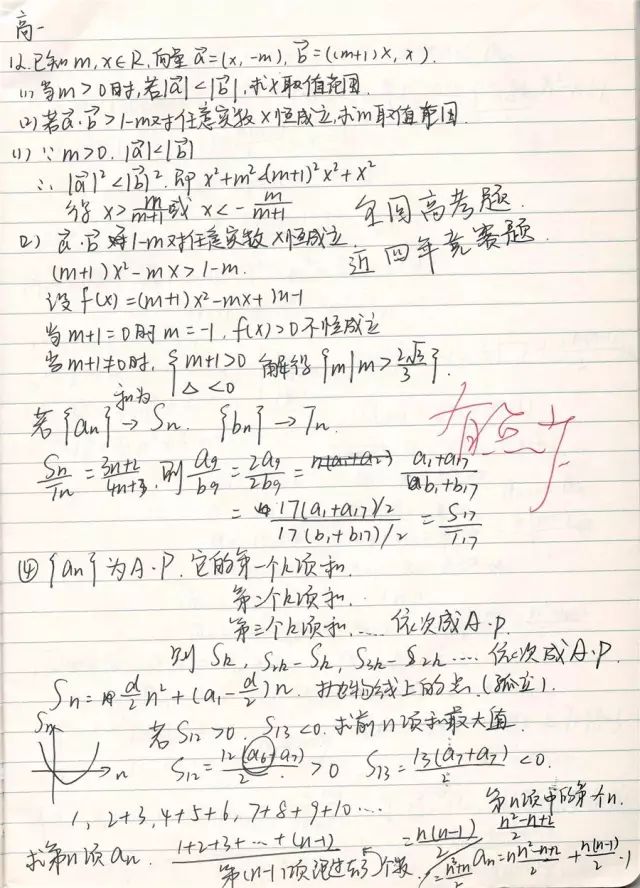 高一
12.已知m,x∈R,向量a⃗=(x,-m),b⃗=((m+1)x,x).
(1)当m>0时,若|a⃗|<|b⃗|,求x取值范围.
(2)若a⃗·b⃗>1-m对任意实数x恒成立,求m取值范围.
(1)∵m>0.|a⃗|<|b⃗|
∴|a⃗|²<|b⃗|².即x²+m²<(m+1)²x²+x²
得x>m/(m+1)或x<-m/(m+1)
全国高考题.
近四年竞赛题.
(2) a⃗·b⃗>1-m对任意实数x恒成立.
(m+1)x²-mx>1-m.
设f(x)=(m+1)x²-mx+m-1
当m+1=0时m=-1,f(x)>0不恒成立
当m+1≠0时,{m+1>0 △<0 解得{m|m>2√3/3}.
和为
若{an}→Sn. {bn}→Tn.
Sn/Tn=(3n+2)/(4n+3),则a9/b9=2a9/2b9=(a1+a17)/(b1+b17)
=(17(a1+a17)/2)/(17(b1+b17)/2)=S17/T17
④{an}为A·P.它的第一个k项和,
第二个k项和,
第三个k项和,……依次成A·P.
则Sk,S2k-Sk,S3k-S2k……依次成A·P.
Sn=d/2n²+(a1-d/2)n.抛物线上的点(孤立).
Sn
n
若S12>0,S13<0.求前n项和最大值.
S12=12(a6+a7)/2>0 S13=13(a7+a7)/2<0.
1,2+3,4+5+6,7+8+9+10…
第n项中的第一个n.
(n²-n+2)/2
求第n项an. 1+2+3+…+(n-1)=n(n-1)/2
第(n-1)项混过去了 个数.
=(n³+n)/2 an=n(n²-n+2)/2+n(n-1)/2·1